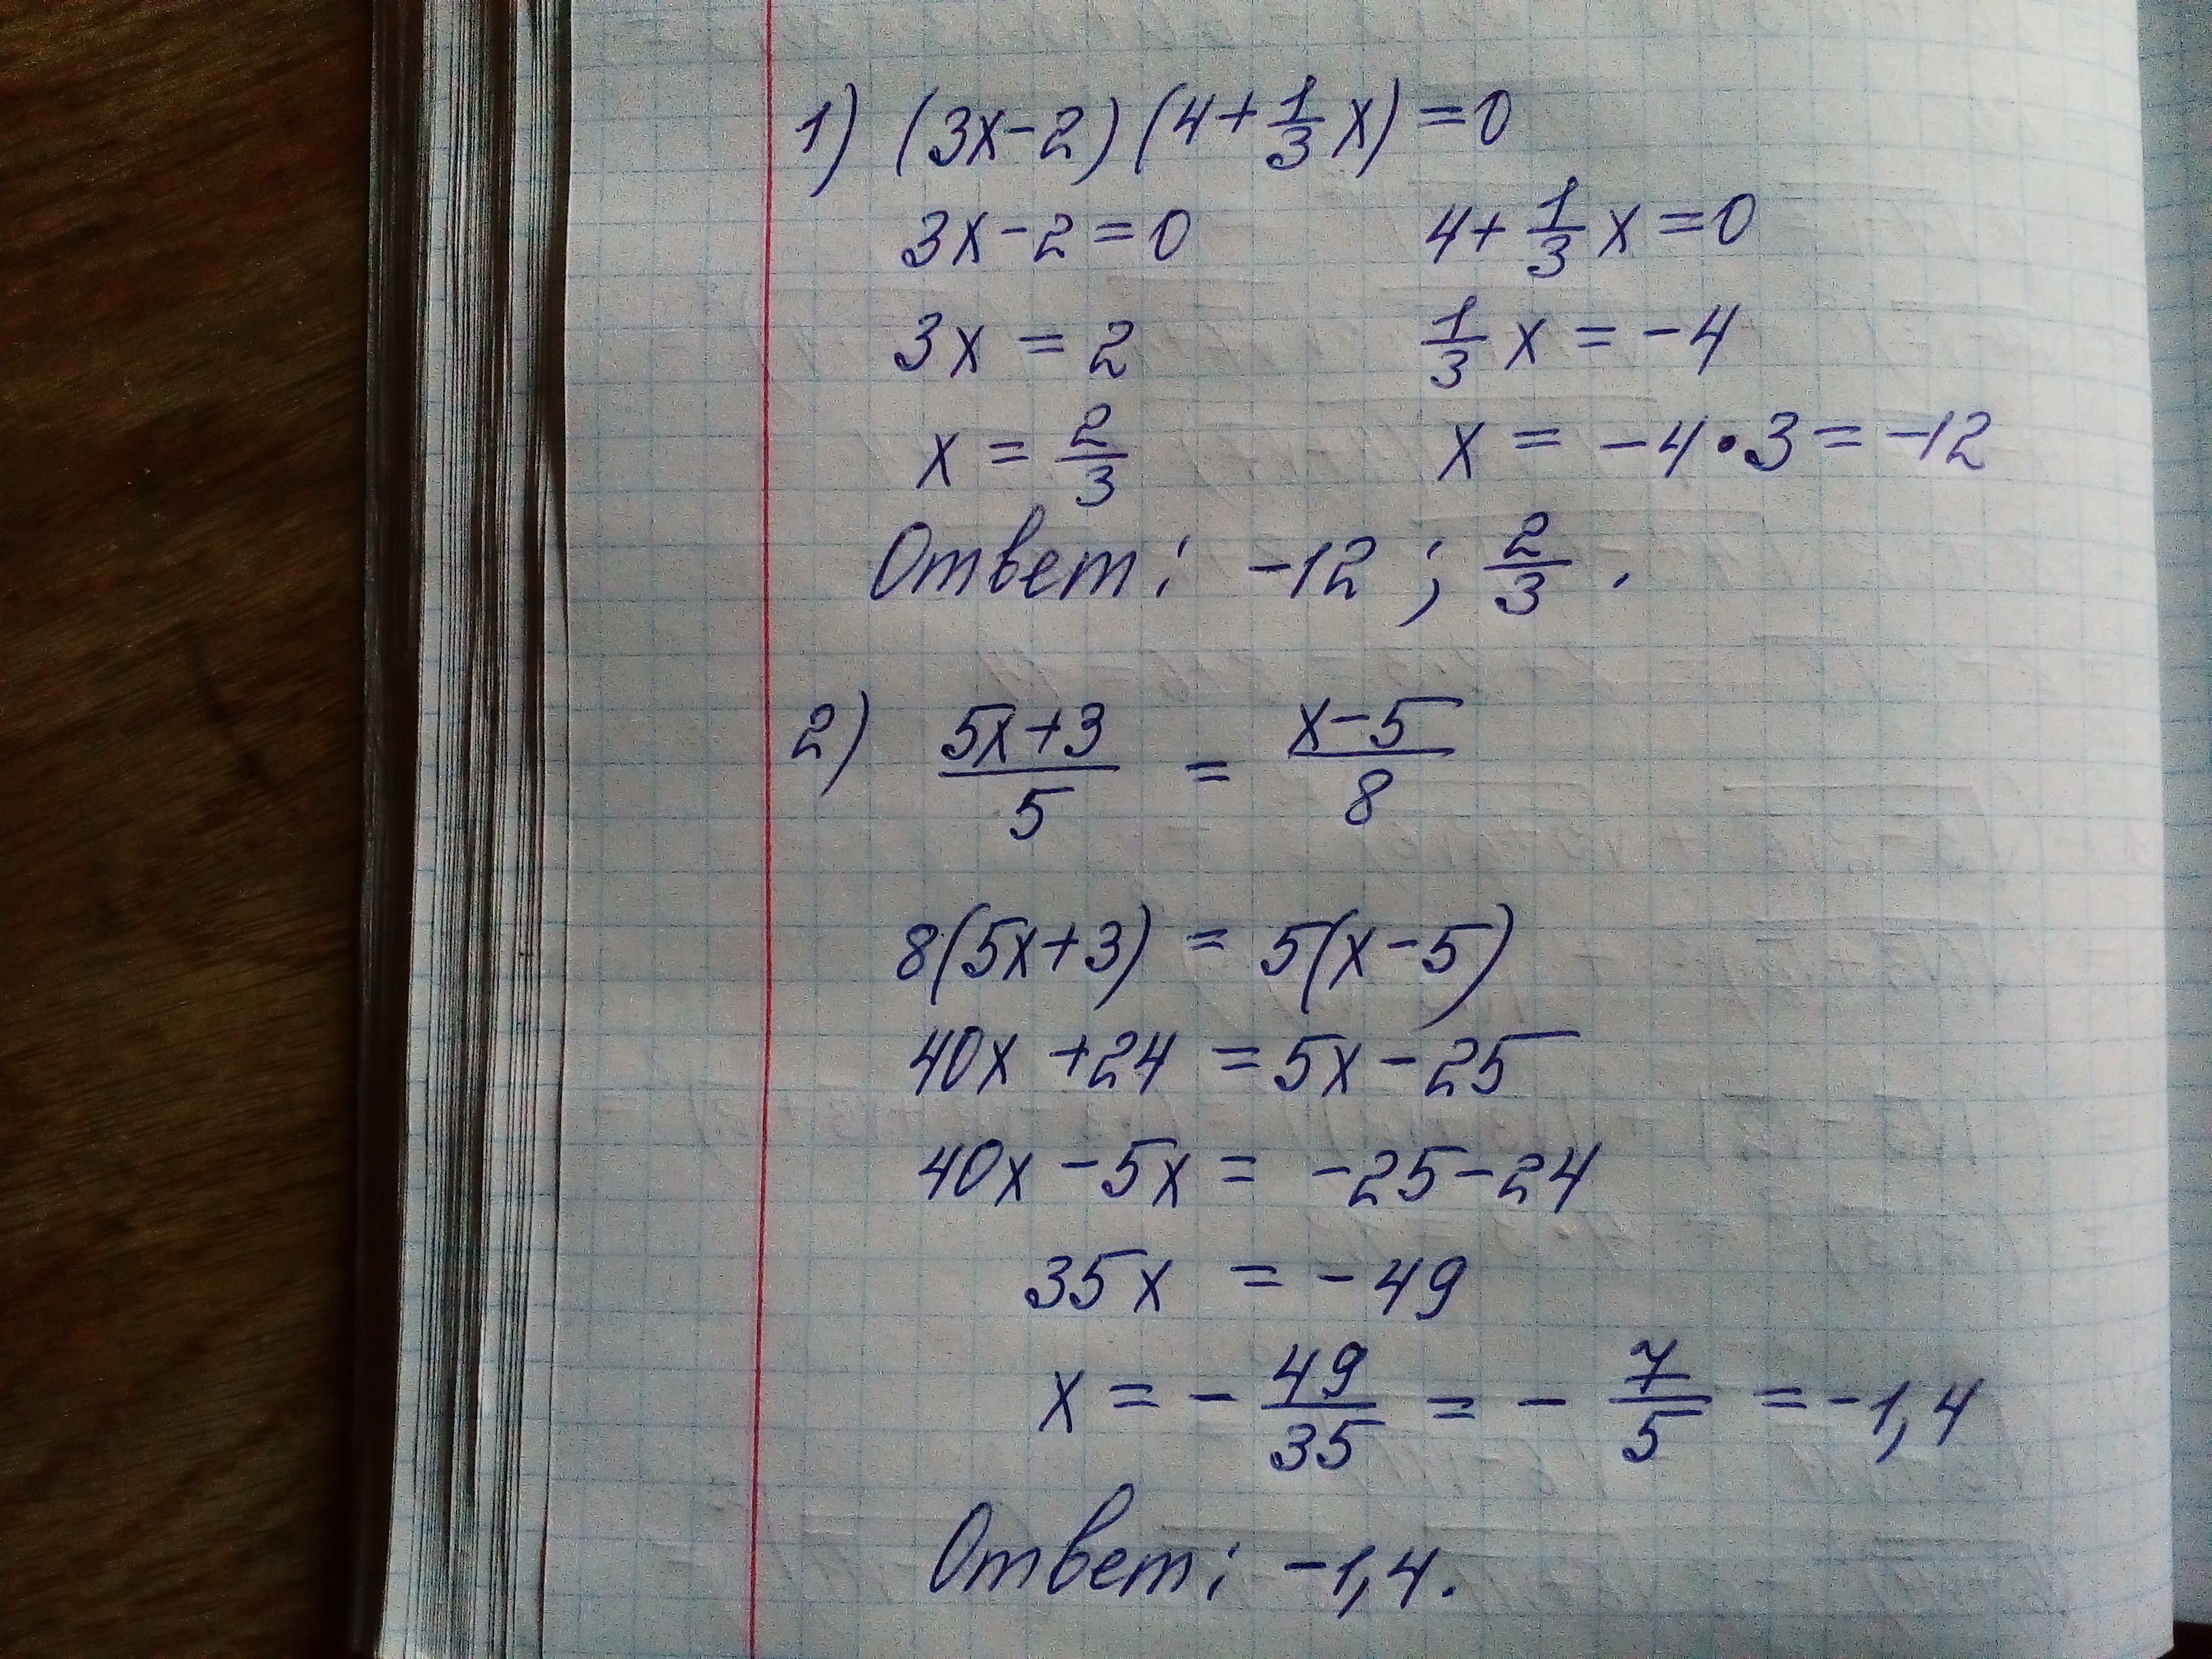 1) (3x-2)(4+1/3 x)=0
3x-2=0 4+1/3 x=0
3x=2 1/3 x=-4
x=2/3 x=-4•3=-12
Ответ: -12; 2/3.
2) (5x+3)/5 = (x-5)/8
8(5x+3)=5(x-5)
40x+24=5x-25
40x-5x=-25-24
35x=-49
x=-49/35=-7/5=-1,4
Ответ: -1,4.